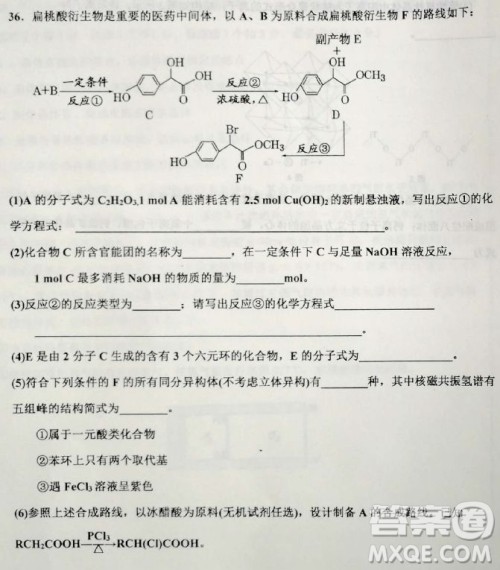 36．扁桃酸衍生物是重要的医药中间体，以 A、B 为原料合成扁桃酸衍生物 F 的路线如下：
副产物 E
+
A+B 一定条件 反应① HO OH OH O C 反应② 浓硫酸，△ HO OH OCH₃ O D
HO Br OCH₃ O F 反应③
(1)A 的分子式为 C₂H₂O₃,1 mol A 能消耗含有 2.5 mol Cu(OH)₂ 的新制悬浊液，写出反应①的化
学方程式： 。
(2)化合物 C 所含官能团的名称为 ，在一定条件下 C 与足量 NaOH 溶液反应，
1 mol C 最多消耗 NaOH 的物质的量为 mol。
(3)反应②的反应类型为 ；请写出反应③的化学方程式
。
(4)E 是由 2 分子 C 生成的含有 3 个六元环的化合物，E 的分子式为 。
(5)符合下列条件的 F 的所有同分异构体(不考虑立体异构)有 种，其中核磁共振氢谱有
五组峰的结构简式为 。
①属于一元酸类化合物
②苯环上只有两个取代基
③遇 FeCl₃ 溶液呈紫色
(6)参照上述合成路线，以冰醋酸为原料(无机试剂任选)，设计制备 A 的合成路线。已知
RCH₂COOH PCl₃ △ RCH(Cl)COOH。
答案圈
MXQE.COM